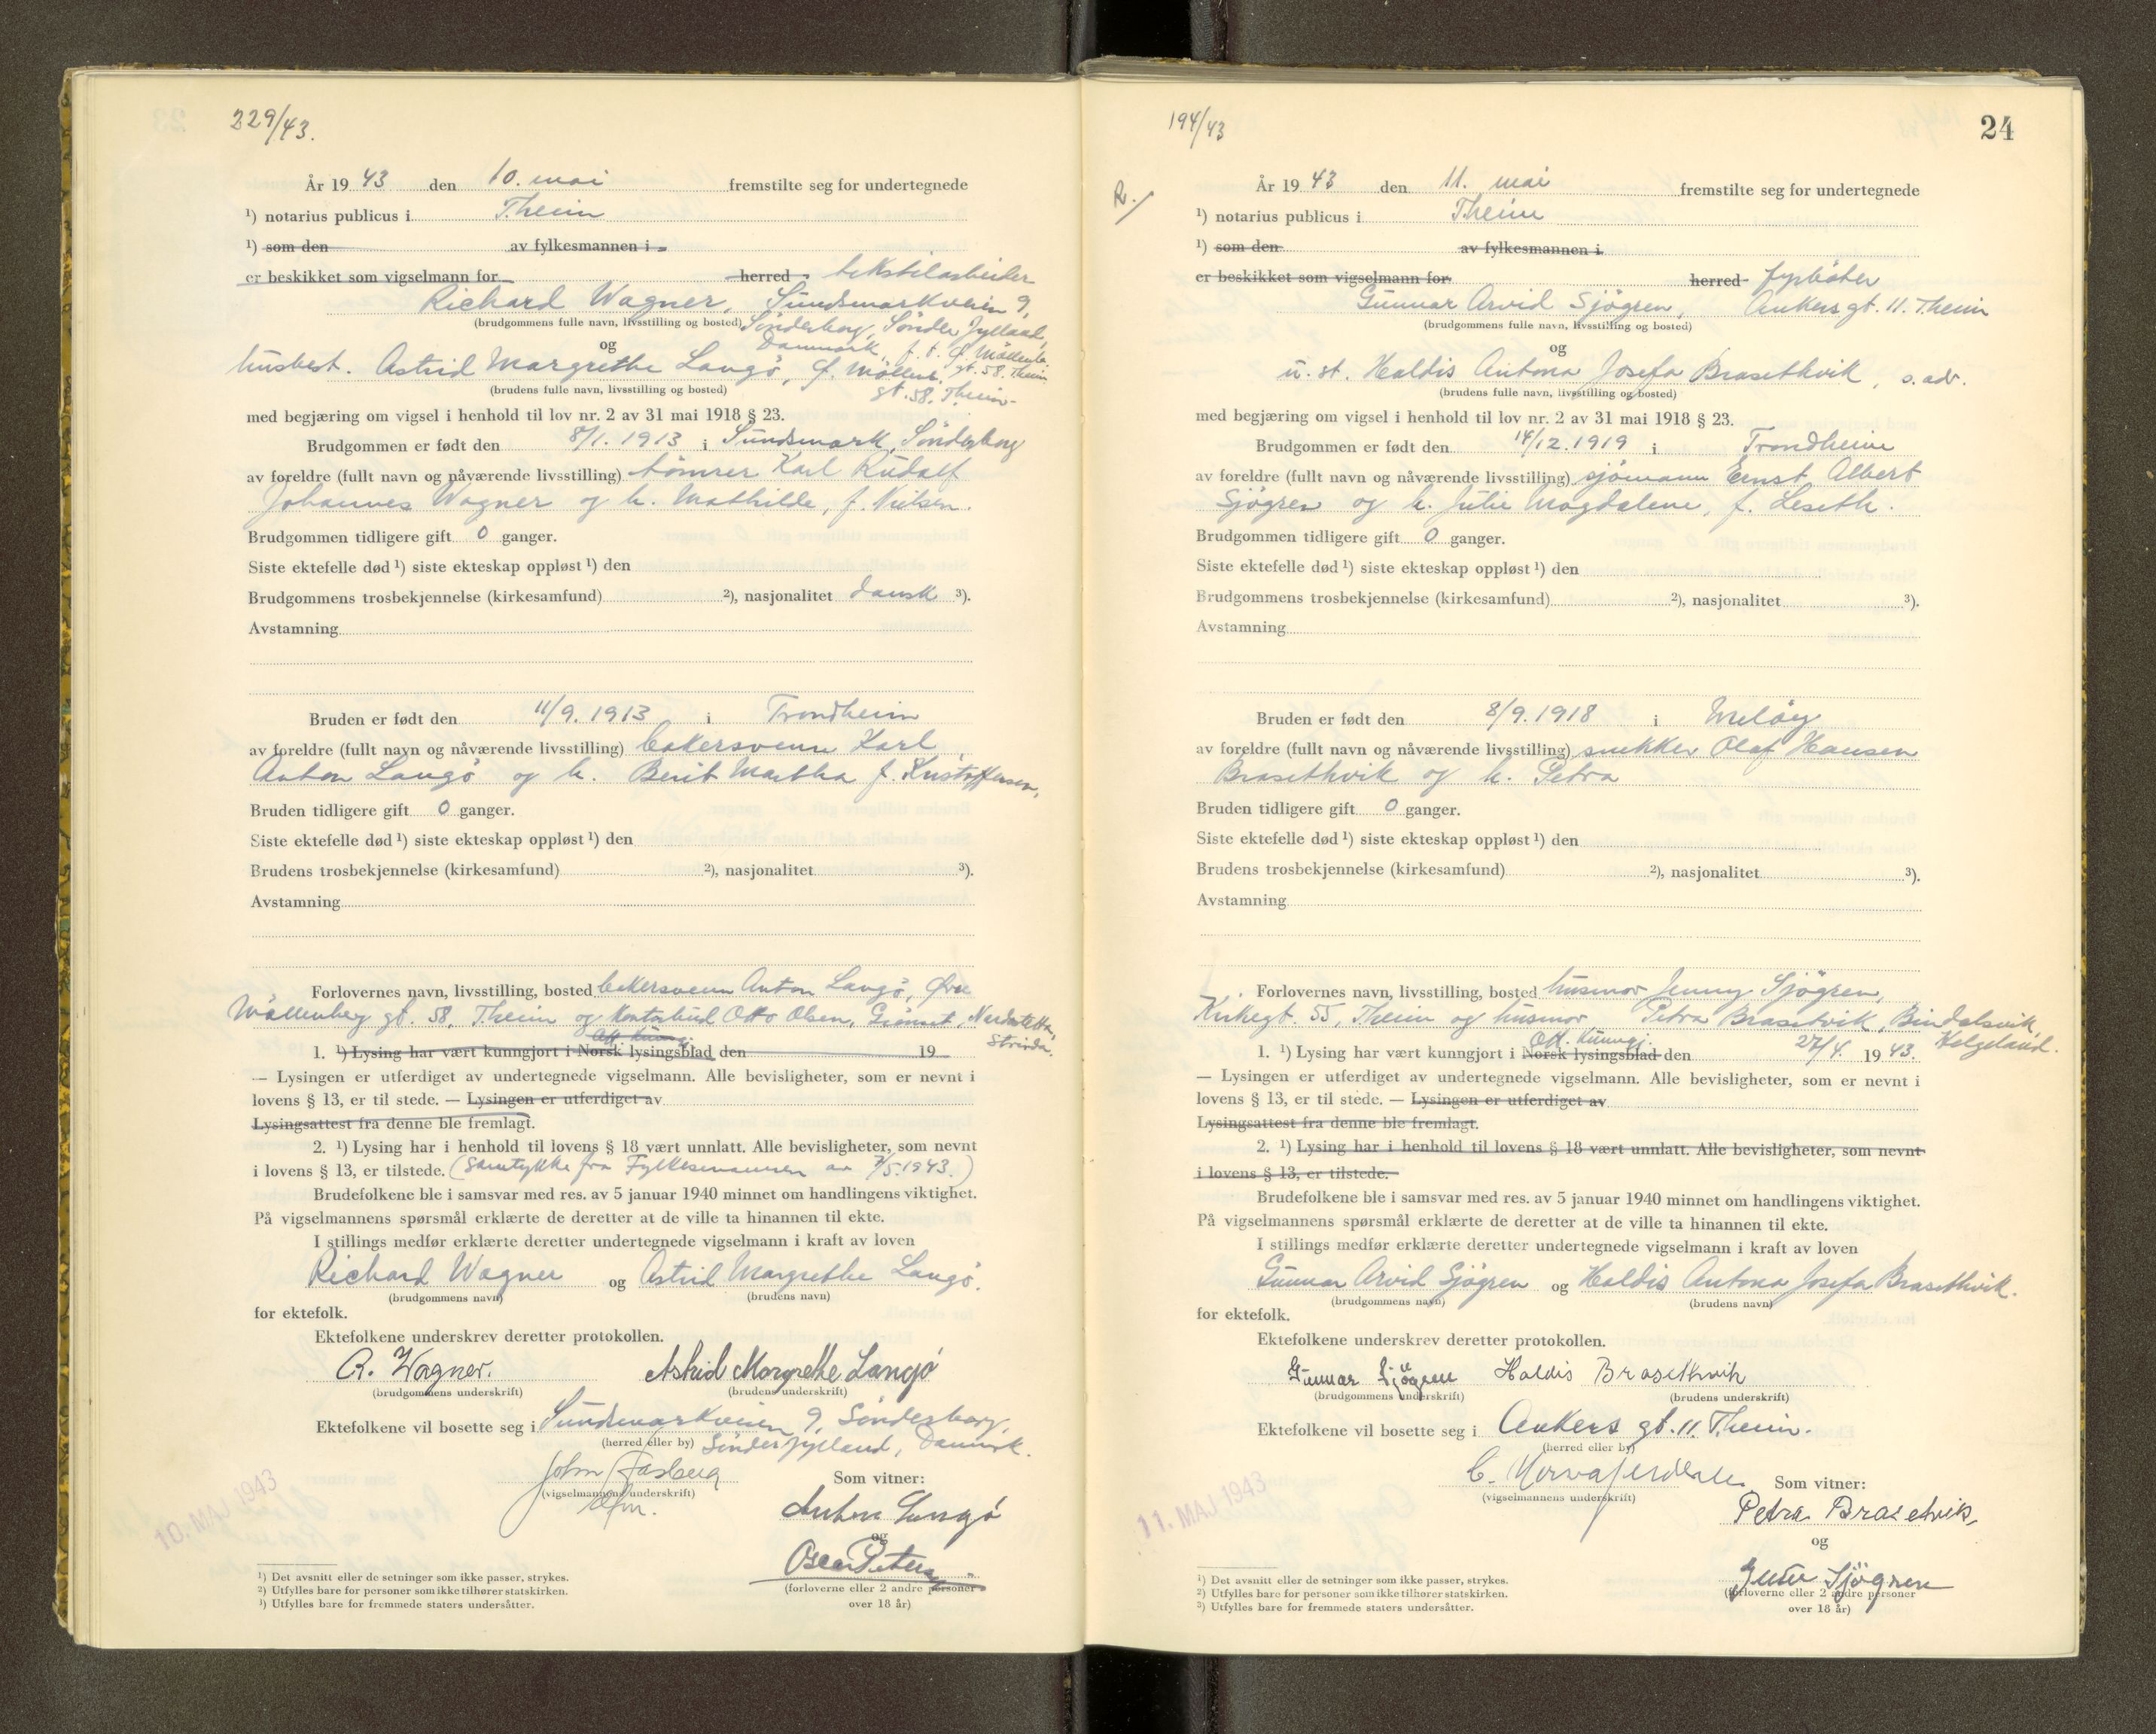 229/43.
År 1943 den 10. mai fremstilte seg for undertegnede
¹) notarius publicus i Trheim
¹) som den av fylkesmannen i
er beskikket som vigselmann for herred tekstilarbeider
Richard Wagner, Sundsmarkveien 9,
(brudgommens fulle navn, livsstilling og bosted) Sønderborg, Sønder Jylland,
og Danmark, f. t. Ø. Møllenb.
gt. 58. Trheim
husbest. Astrid Margrethe Langø, Ø. Møllenb.
(brudens fulle navn, livsstilling og bosted) gt. 58. Trheim
med begjæring om vigsel i henhold til lov nr. 2 av 31 mai 1918 § 23.
Brudgommen er født den 8/1. 1913 i Sundsmark, Sønderborg
av foreldre (fullt navn og nåværende livsstilling) tømrer Karl Rudolf
Johannes Wagner og h. Mathilde, f. Nielsen.
Brudgommen tidligere gift 0 ganger.
Siste ektefelle død ¹) siste ekteskap oppløst ¹) den
Brudgommens trosbekjennelse (kirkesamfund) ²), nasjonalitet dansk ³).
Avstamning
Bruden er født den 11/9. 1913 i Trondheim
av foreldre (fullt navn og nåværende livsstilling) bakersvenn Karl
Anton Langø og h. Berit Martha f. Kristoffersen,
Bruden tidligere gift 0 ganger.
Siste ektefelle død ¹) siste ekteskap oppløst ¹) den
Brudens trosbekjennelse (kirkesamfund) ²), nasjonalitet ³).
Avstamning
Forlovernes navn, livsstilling, bosted bakersvenn Anton Langø, Øvre
Møllenberg gt. 58, Trheim og kontorbud Otto Olsen, Nardosletta,
Strinda.
Off. kunngj.
1. ¹) Lysing har vært kunngjort i Norsk lysingsblad den 19
— Lysingen er utferdiget av undertegnede vigselmann. Alle bevisligheter, som er nevnt i
lovens § 13, er til stede. — Lysingen er utferdiget av
Lysingsattest fra denne ble fremlagt.
2. ¹) Lysing har i henhold til lovens § 18 vært unnlatt. Alle bevisligheter, som nevnt
i lovens § 13, er tilstede. (Samtykke fra Fylkesmannen av 7/5.1943.)
Brudefolkene ble i samsvar med res. av 5 januar 1940 minnet om handlingens viktighet.
På vigselmannens spørsmål erklærte de deretter at de ville ta hinannen til ekte.
I stillings medfør erklærte deretter undertegnede vigselmann i kraft av loven
Richard Wagner og Astrid Margrethe Langø.
(brudgommens navn) (brudens navn)
for ektefolk.
Ektefolkene underskrev deretter protokollen.
R. Wagner. Astrid Margrethe Langø
(brudgommens underskrift) (brudens underskrift)
Ektefolkene vil bosette seg i Sundsmarkveien 9, Sønderborg,
(herred eller by) Sønderjylland, Danmark.
John
(vigselmannens underskrift) Som vitner:
Anton Langø
og
10. MAJ 1943
(forloverne eller 2 andre personer
over 18 år)
¹) Det avsnitt eller de setninger som ikke passer, strykes.
²) Utfylles bare for personer som ikke tilhører statskirken.
³) Utfylles bare for fremmede staters undersåtter.
194/43
24
R./
År 1943 den 11. mai fremstilte seg for undertegnede
¹) notarius publicus i Trheim
¹) som den av fylkesmannen i
er beskikket som vigselmann for herred fyrbøter
Gunnar Arvid Sjøgren, Ankers gt. 11. Trheim
(brudgommens fulle navn, livsstilling og bosted)
og
u. st. Haldis Antona Josefa Brasethvik, s. adr.
(brudens fulle navn, livsstilling og bosted)
med begjæring om vigsel i henhold til lov nr. 2 av 31 mai 1918 § 23.
Brudgommen er født den 14/12. 1919 i Trondheim
av foreldre (fullt navn og nåværende livsstilling) sjømann Ernst Albert
Sjögren og h. Julie Magdalene, f. Leseth.
Brudgommen tidligere gift 0 ganger.
Siste ektefelle død ¹) siste ekteskap oppløst ¹) den
Brudgommens trosbekjennelse (kirkesamfund) ²), nasjonalitet ³).
Avstamning
Bruden er født den 8/9. 1918 i Meløy
av foreldre (fullt navn og nåværende livsstilling) snekker Olaf Hansen
Brasethvik og h. Petra
Bruden tidligere gift 0 ganger.
Siste ektefelle død ¹) siste ekteskap oppløst ¹) den
Brudens trosbekjennelse (kirkesamfund) ²), nasjonalitet ³).
Avstamning
Forlovernes navn, livsstilling, bosted husmor Jenny Sjögren,
Kirkegt. 55, Trheim og husmor Petra Brasetvik, Bindalsvik,
Helgeland.
Off. kunngj.
1. ¹) Lysing har vært kunngjort i Norsk lysingsblad den 27/4. 1943.
— Lysingen er utferdiget av undertegnede vigselmann. Alle bevisligheter, som er nevnt i
lovens § 13, er til stede. — Lysingen er utferdiget av
Lysingsattest fra denne ble fremlagt.
2. ¹) Lysing har i henhold til lovens § 18 vært unnlatt. Alle bevisligheter, som nevnt
i lovens § 13, er tilstede.
Brudefolkene ble i samsvar med res. av 5 januar 1940 minnet om handlingens viktighet.
På vigselmannens spørsmål erklærte de deretter at de ville ta hinannen til ekte.
I stillings medfør erklærte deretter undertegnede vigselmann i kraft av loven
Gunnar Arvid Sjögren og Haldis Antona Josefa Brasethvik.
(brudgommens navn) (brudens navn)
for ektefolk.
Ektefolkene underskrev deretter protokollen.
Gunnar Sjögren Haldis Brasethvik
(brudgommens underskrift) (brudens underskrift)
Ektefolkene vil bosette seg i Ankers gt. 11. Trheim.
(herred eller by)
(vigselmannens underskrift) Som vitner:
Petra Brasetvik
og
11. MAJ 1943
Sjögren
(forloverne eller 2 andre personer
over 18 år)
¹) Det avsnitt eller de setninger som ikke passer, strykes.
²) Utfylles bare for personer som ikke tilhører statskirken.
³) Utfylles bare for fremmede staters undersåtter.